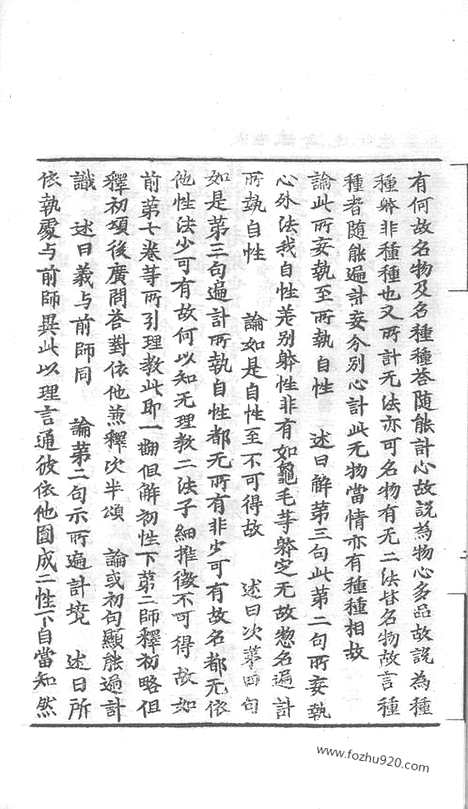 有何故名物及名種種答隨能計心故說為物心多品故說為種
種體非種種也又所計无法亦可名物有无二法皆名物故言種
種者隨能遍計妄分別心計此无物當情亦有種種相故
論此所妄執至所執自性　述曰解第三句此第二句所妄執
心外法我自性差別體性非有如龜毛等體定无故惣名遍計
所執自性　論如是自性至不可得故　述曰次第四句
如是第三句遍計所執自性都无所有非少可有故名都无依
他性法少可有故何以知无理教二法子細推徵不可得故如
前第七卷等所引理教此即一翻但解初性下第二師釋初略但
釋初項後廣問答對依他兼釋次半頌　論或初句顯能遍計
識　述曰義与前師同　論第二句示所遍計境　述曰所
依執處与前師異此以理言通彼依他圓成二性下自當知然
www.fozhu920.com